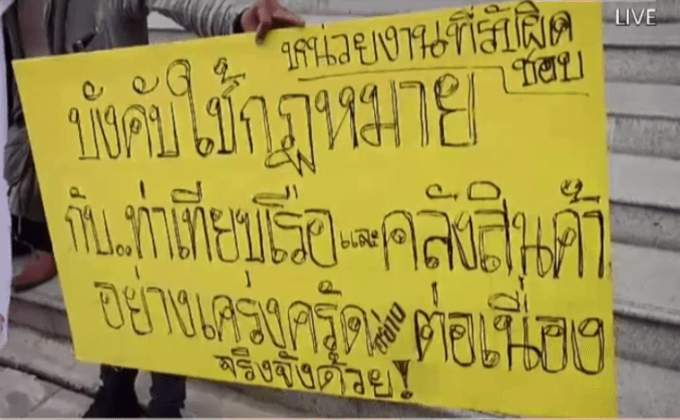 LIVE
หน่วยงานที่รับผิด
ชอบ
บังคับใช้กฎหมาย
กับ..ท่าเทียบเรือและคลังสินค้า
อย่างเคร่งครัด ต่อเนื่อง
จริงจังด้วย!